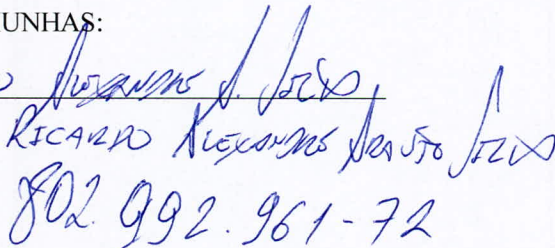 UNHAS:
O Alexandre A. Silva
RICARDO ALEXANDRE ARAUJO SILVA
802.992.961-72